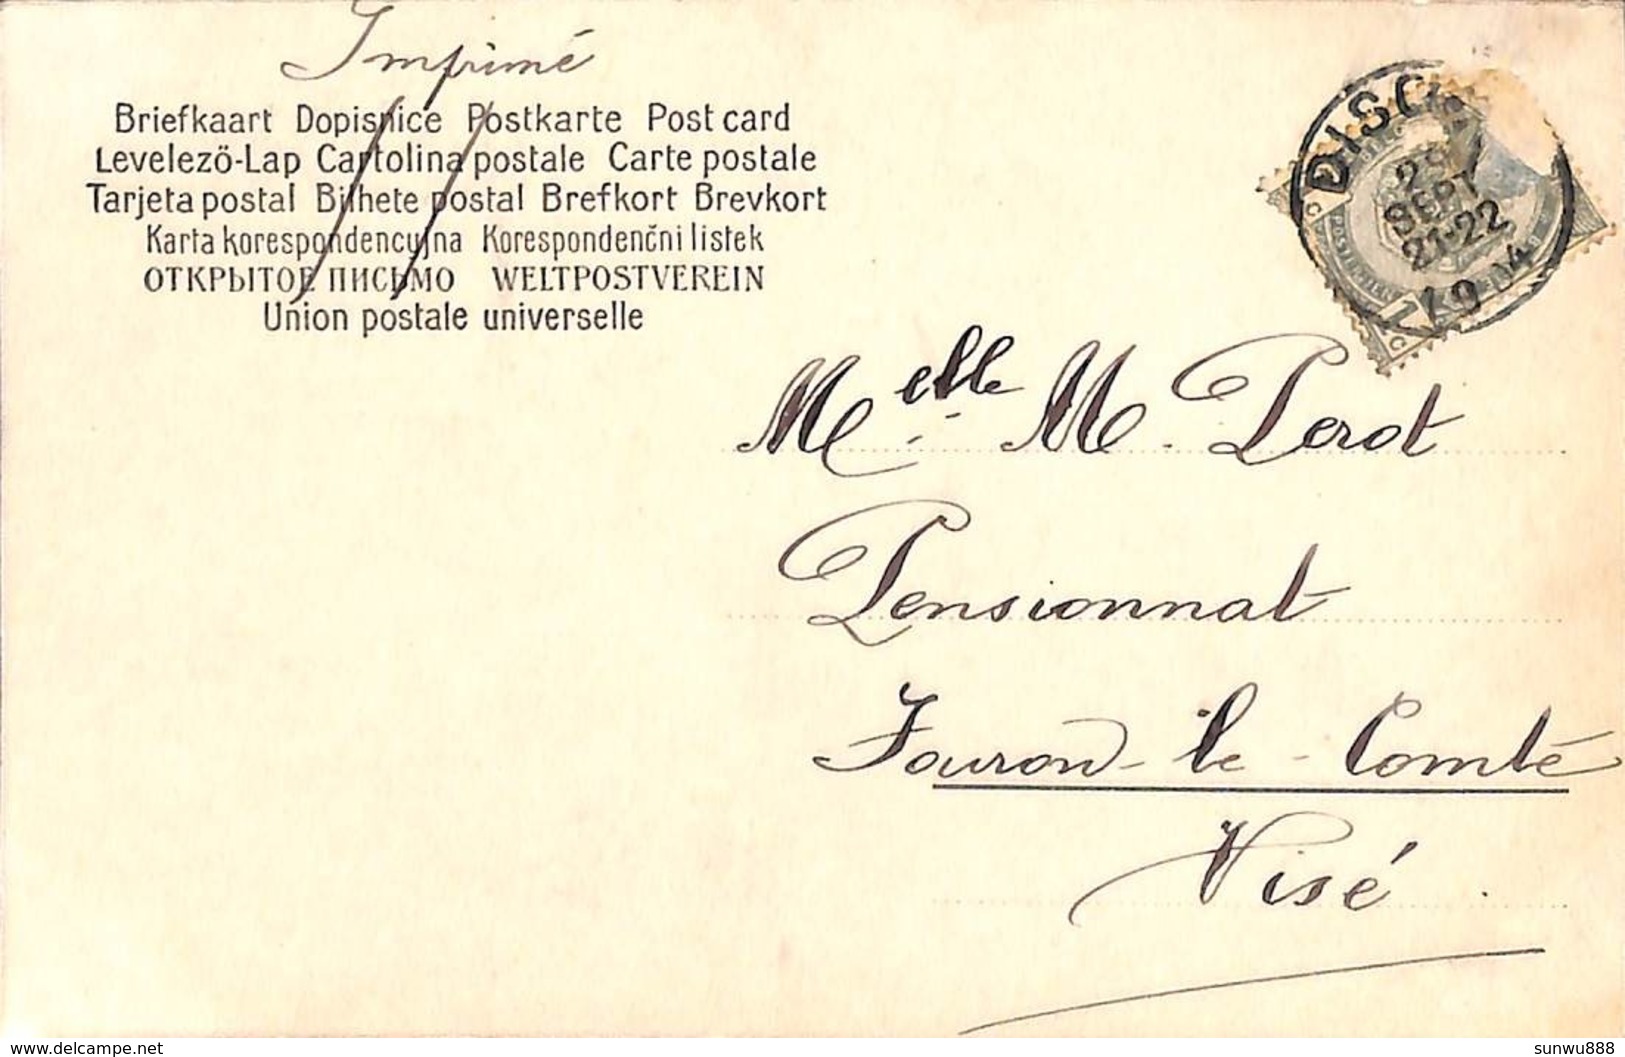 Imprimé
Briefkaart Dopisnice Postkarte Post card
Levelezö-Lap Cartolina postale Carte postale
Tarjeta postal Bilhete postal Brefkort Brevkort
Karta korespondencyjna Korespondenčni listek
ОТКРЫТОЕ ПИСЬМО WELTPOSTVEREIN
Union postale universelle
SEPT
21-22
1904
Melle M. Perot
Pensionnat
Fouron-le-Comte
Visé
delcampe.net
sunwu888